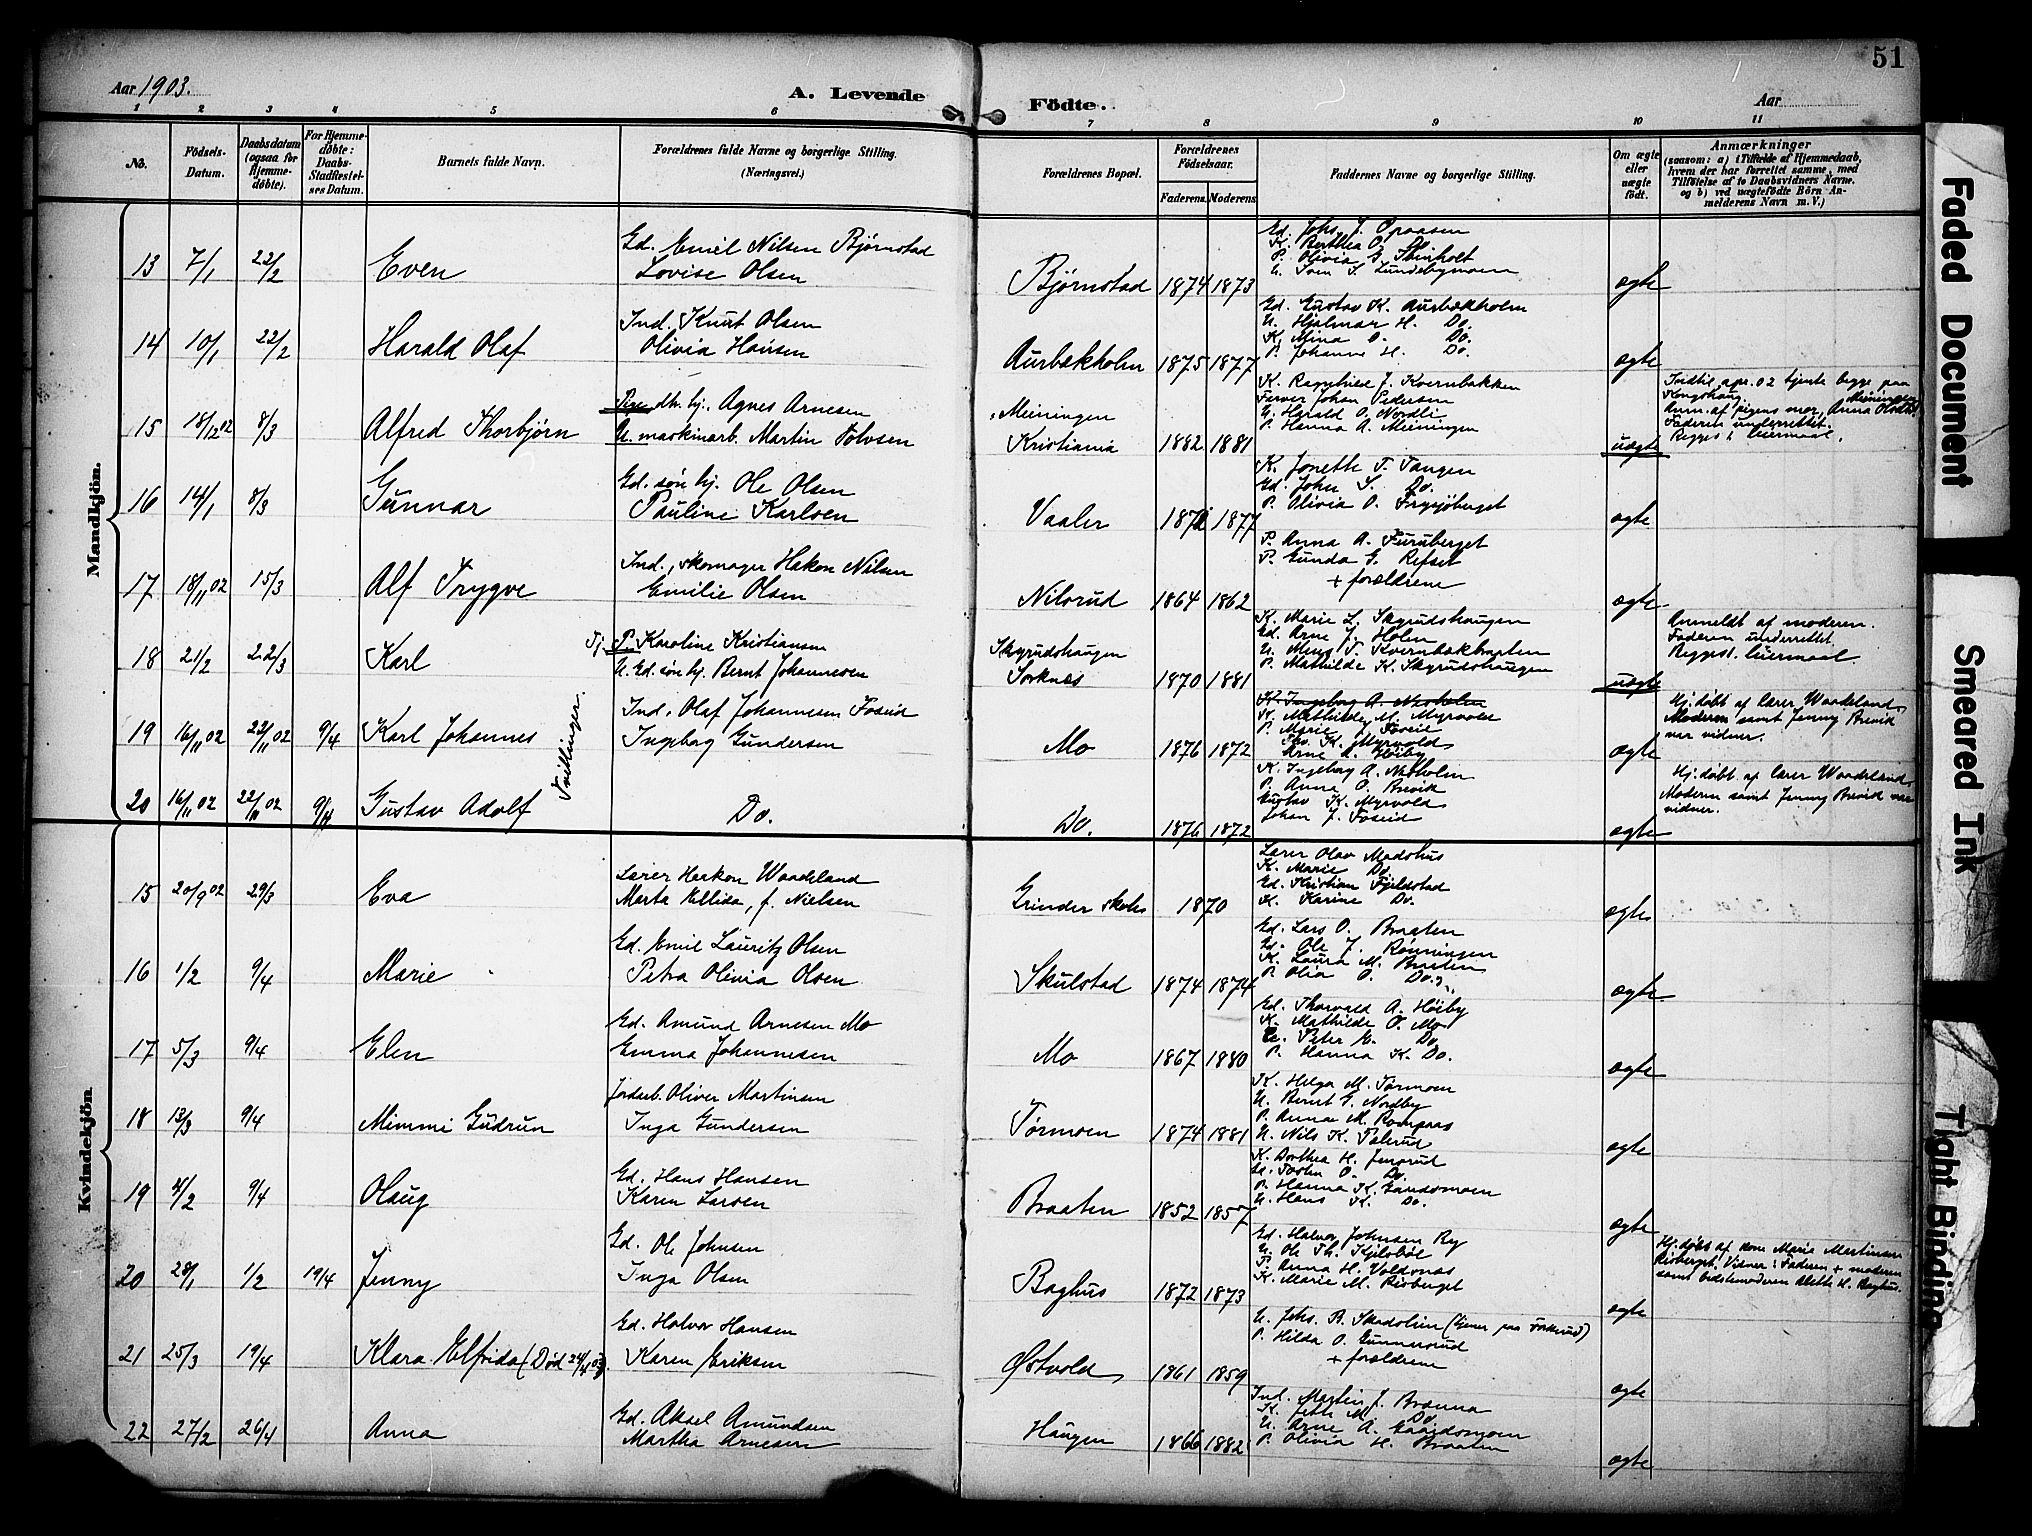 51
Aar 1903.
A. Levende Födte.
Aar
1 2 3 4 5 6 7 8 9 10 11
No.
Födsels-Datum.
Daabsdatum (ogsaa for Hjemme-döbte).
For Hjemme-döbte: Daabs-Stadfæstel-ses Datum.
Barnets fulde Navn.
Forældrenes fulde Navne og borgerlige Stilling. (Næringsvei.)
Forældrenes Bopæl.
Forældrenes Födselsaar.
Faderens. Moderens.
Faddernes Navne og borgerlige Stilling.
Om ægte eller uægte födt.
Anmærkninger
(saasom: a) i Tilfælde af Hjemmedaab, hvem der har forrettet samme, med Tilföielse af to Daabsvidners Navne, og b) ved uægtefödte Börn Anmelderens Navn m. V.)
Mandkjön.
13 7/1 22/2 Even
Gd. Emil Nilsen Bjørnstad
Lovise Olsen
Bjørnstad 1874 1873
Gd. Johs. J. Opaasen
K. Berthea O. Do
P. Olivia G. Stenholt
U. Sven S. Lundebymoen
ægte
14 10/1 22/2 Harald Olaf
Ind. Knut Olsen
Olivia Hansen
Aurbækholm 1875 1877
Gd. Gustav K. Aurbækholm
U. Hjalmar H. Do.
K. Mina O. Do.
P. Johanne H. Do.
ægte
15 18/12 02 8/3 Alfred Thorbjørn
Pige dh. hj. Agnes Arnesen
U. maskinarb. Martin Tolvsen
Meiningen
Kristiania 1882 1881
K. Ragnhild J. Kvernbakken
Farver Johan Pedersen
U. Harald O. Nordli
P. Hanna A. Meiningen
uægte
Indtil apr. 02 tjente begge paa Kongshaug.
Anm. af pigens mor, Anna Meiningen
Faderen underrettet.
Begges 1. leiermaal.
16 14/1 8/3 Gunnar
Gd. søn hj. Ole Olsen
Pauline Karlsen
Vaaler 1877
K. Jonette T. Tangen
Gd. John S. Do.
P. Olivia O. Frysjøberget
ægte
17 18/11 02 15/3 Alf Trygve
Ind., skomager Hakon Nilsen
Emilie Olsen
Nilsrud 1864 1862
P. Anna A. Furuberget
P. Gunda G. Refset
+ forældrene
ægte
18 21/2 22/3 Karl
Tj. P. Karoline Kristiansen
U. Gd. søn hj. Bernt Johannesen
Skyrudshaugen
Sorknes 1870 1881
K. Marie L. Skyrudshaugen
Gd. Arne J. Holen
U. Mens T. Kvernbækbraaten
P. Mathilde K. Skyrudshaugen
uægte
Anmeldt af moderen.
Faderen underrettet.
Begges 1. leiermaal.
19 16/11 02 22/11 02 9/4 Karl Johannes
Tvillinger.
Ind. Olaf Johannesen Fosseid
Ingeborg Gundersen
Mo 1876 1872
K. Ingeborg A. Nesholm
K. Mathilde M. Myrvold
P. Marie J. Foseid
Tho. K. Myrvold
Arne A. Høiby
ægte
Hj. døbt af lærer Waadeland,
Moderen samt Jenny Brevik
var vidner.
20 16/11 02 22/11 02 9/4 Gustav Adolf
Do.
Do. 1876 1872
K. Ingeborg A. Nesholm
P. Anna O. Brevik
Gustav K. Myrvold
Johan J. Foseid
ægte
Hj. døbt af lærer Waadeland,
Moderen samt Jenny Brevik var
vidner.
Kvindekjön
15 20/9 02 29/3 Eva
Lærer Haakon Waadeland
Marta Ellida, f. Nielsen
Grinder skole 1870
Lærer Olav Madshus
K. Marie Do
Gd. Kristian Fjeldstad
K. Karine Do.
ægte
16 1/2 9/4 Marie
Gd. Emil Lauritz Olsen
Petra Olivia Olsen
Skulstad 1874 1874
Gd. Lars O. Braaten
Gd. Ole J. Rønningen
K. Laura M. Braaten
P. Olia O. Do.
ægte
17 5/3 9/4 Elen
Gd. Amund Arnesen Mo
Emma Johannesen
Mo 1867 1880
Gd. Thorvald A. Høiby
K. Mathilde O. Mo
U. Peter E. Do
P. Hanna K. Do.
ægte
18 13/3 9/4 Mimmi Gudrun
Jordarb. Oliver Martinsen
Inga Gundersen
Tørmoen 1874 1881
K. Helga M. Tørmoen
U. Bernt G. Nordby
P. Anna M. Rompaas
U. Nils K. Tølerud
ægte
19 4/2 9/4 Olaug
Gd. Hans Hansen
Karen Larsen
Braaten 1852 1857
K. Dorthea H. Jensrud
Gd. Torsten O. Do.
P. Hanna K. Gaardsmoen
U. Hans K. Do.
ægte
20 28/1 1/2 19/4 Jenny
Gd. Ole Johnsen
Inga Olsen
Baghus 1872 1873
Gd. Halvor Johnsen Ry
U. Ole Th. Kjelsbøl
P. Anna H. Voldnæs
K. Marie M. Risberget
ægte
Hj. døbt af kone Marie Martinsen
Risberget. Vidner: Faderen + moderen
samt bedstemoderen Alette H. Baghus.
21 25/3 19/4 Klara Elfrida (Død 24/4 03)
Gd. Halvor Hansen
Karen Eriksen
Østvold 1861 1859
U. Johs. B. Skadolien (tjener paa )
P. Hilda O. Gunnersrud
+ forældrene
ægte
22 27/2 26/4 Anna
Gd. Aksel Amundsen
Martha Arnesen
Haugen 1866 1882
Ind. Martin J. Brænna
K. Jette M. Do.
U. Arne A. Gaardsmoen
P. Olivia H. Braaten
ægte
Faded Document
Smeared Ink
Tight Binding